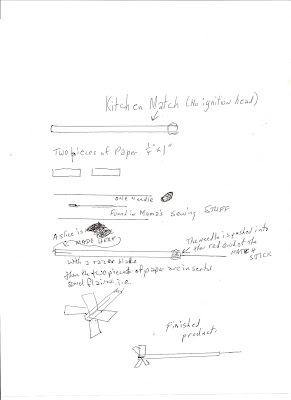 Kitchen Match (No ignition head)
Two pieces of Paper ¼" x 1"
one needle
Found in Mama's sewing STUFF
A slice is
MADE HERE
The Needle is pasted into
the red end of the
MATCH
STICK
with a razer blade
then the two pieces of paper are inserts
and
Finished
product